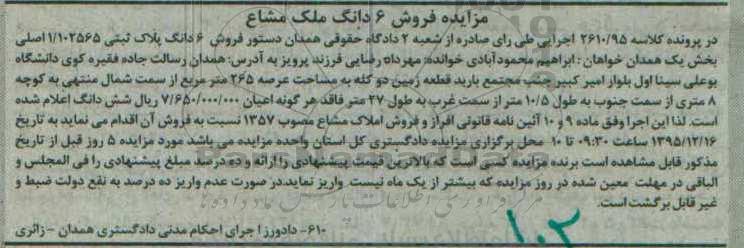 مزایده فروش ۶ دانگ ملک مشاع
در پرونده کلاسه ۲۶۱۰/۹۵ اجرایی طی رای صادره از شعبه ۲ دادگاه حقوقی همدان دستور فروش ۶ دانگ پلاک ثبتی ۱/۱۰۲۵۶۵ اصلی
بخش یک همدان خواهان: ابراهیم محمودآبادی خوانده: مهرداد رضایی فرزند پرویز به آدرس: همدان رسالت جاده فقیره کوی دانشگاه
بوعلی سینا اول بلوار امیر کبیر جنب مجتمع بارید قطعه زمین دو کله به مساحت عرصه ۲۶۵ متر مربع از سمت شمال منتهی به کوچه
۸ متری از سمت جنوب به طول ۱۰/۵ متر از سمت غرب به طول ۲۷ متر فاقد هر گونه اعیان ۷/۶۵۰/۰۰۰/۰۰۰ ریال شش دانگ اعلام شده
است. لذا این اجرا وفق ماده ۹ و ۱۰ آئین نامه قانونی افراز و فروش املاک مشاع مصوب ۱۳۵۷ نسبت به فروش آن اقدام می نماید به تاریخ
۱۳۹۵/۱۲/۱۶ ساعت ۰۹:۳۰ تا ۱۰ محل برگزاری مزایده دادگستری کل استان واحده مزایده می باشد مورد مزایده ۵ روز قبل از تاریخ
مذکور قابل مشاهده است برنده مزایده کسی است که بالاترین قیمت پیشنهادی را ارائه و ده درصد مبلغ پیشنهادی را فی المجلس و
الباقی در مهلت معین شده در روز مزایده که بیشتر از یک ماه نیست واریز نماید. در صورت عدم واریز ده درصد به نفع دولت ضبط و
غیر قابل برگشت است.
۶۱۰- دادورز اجرای احکام مدنی دادگستری همدان - زائری
۱۰۲